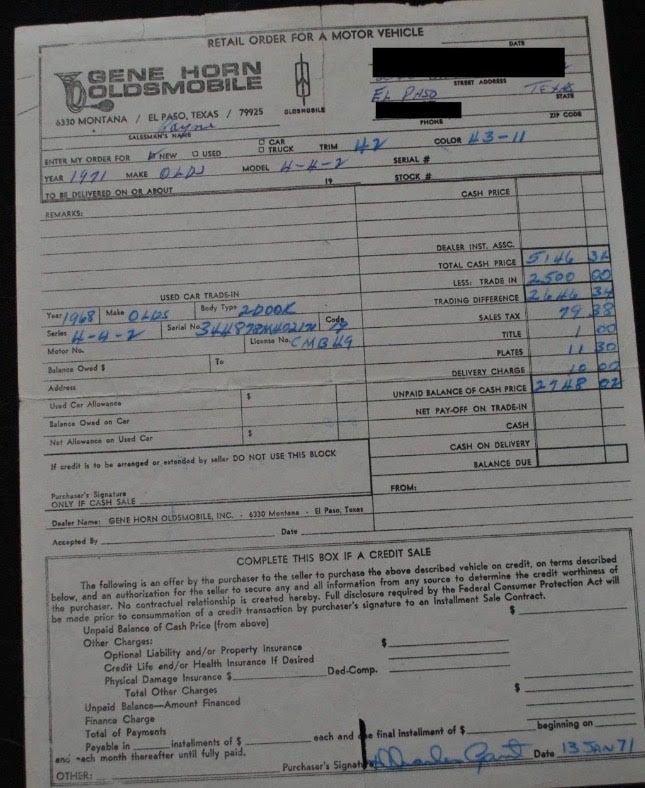 RETAIL ORDER FOR A MOTOR VEHICLE
GENE HORN
OLDSMOBILE
OLDSMOBILE
6330 MONTANA / EL PASO, TEXAS / 79925
DATE
STREET ADDRESS
EL PASO TEXAS
STATE
PHONE ZIP CODE
Wayne
SALESMAN'S NAME
ENTER MY ORDER FOR NEW USED CAR TRUCK TRIM 42 COLOR 43-11
YEAR 1971 MAKE OLDS MODEL 4-4-2 SERIAL #
TO BE DELIVERED ON OR ABOUT 19 STOCK #
REMARKS:
CASH PRICE
DEALER INST. ASSC.
TOTAL CASH PRICE 5146 34
LESS: TRADE IN 2500 00
TRADING DIFFERENCE 2646 34
SALES TAX 79 38
TITLE 1 00
PLATES 11 30
DELIVERY CHARGE 10 00
UNPAID BALANCE OF CASH PRICE 2748 02
NET PAY-OFF ON TRADE-IN
CASH
CASH ON DELIVERY
BALANCE DUE
FROM:
USED CAR TRADE-IN
Year 1968 Make OLDS Body Type 2DOOR
Series 4-4-2 Serial No. Code
Motor No. License No. CMB49
Balance Owed $ To
Address
Used Car Allowance $
Balance Owed on Car
Net Allowance on Used Car $
If credit is to be arranged or extended by seller DO NOT USE THIS BLOCK
Purchaser's Signature
ONLY IF CASH SALE
Dealer Name: GENE HORN OLDSMOBILE, INC. - 6330 Montana - El Paso, Texas
Accepted By Date
COMPLETE THIS BOX IF A CREDIT SALE
The following is an offer by the purchaser to the seller to purchase the above described vehicle on credit, on terms described
below, and an authorization for the seller to secure any and all information from any source to determine the credit worthiness of
the purchaser. No contractual relationship is created hereby. Full disclosure required by the Federal Consumer Protection Act will
be made prior to consummation of a credit transaction by purchaser's signature to an Installment Sale Contract.
Unpaid Balance of Cash Price (from above) $
Other Charges:
Optional Liability and/or Property Insurance $
Credit Life and/or Health Insurance If Desired
Physical Damage Insurance $ Ded-Comp.
Total Other Charges
Unpaid Balance—Amount Financed $
Finance Charge
Total of Payments
Payable in installments of $ each and one final installment of $ beginning on
and each month thereafter until fully paid.
OTHER: Purchaser's Signature Date 13 JAN 71